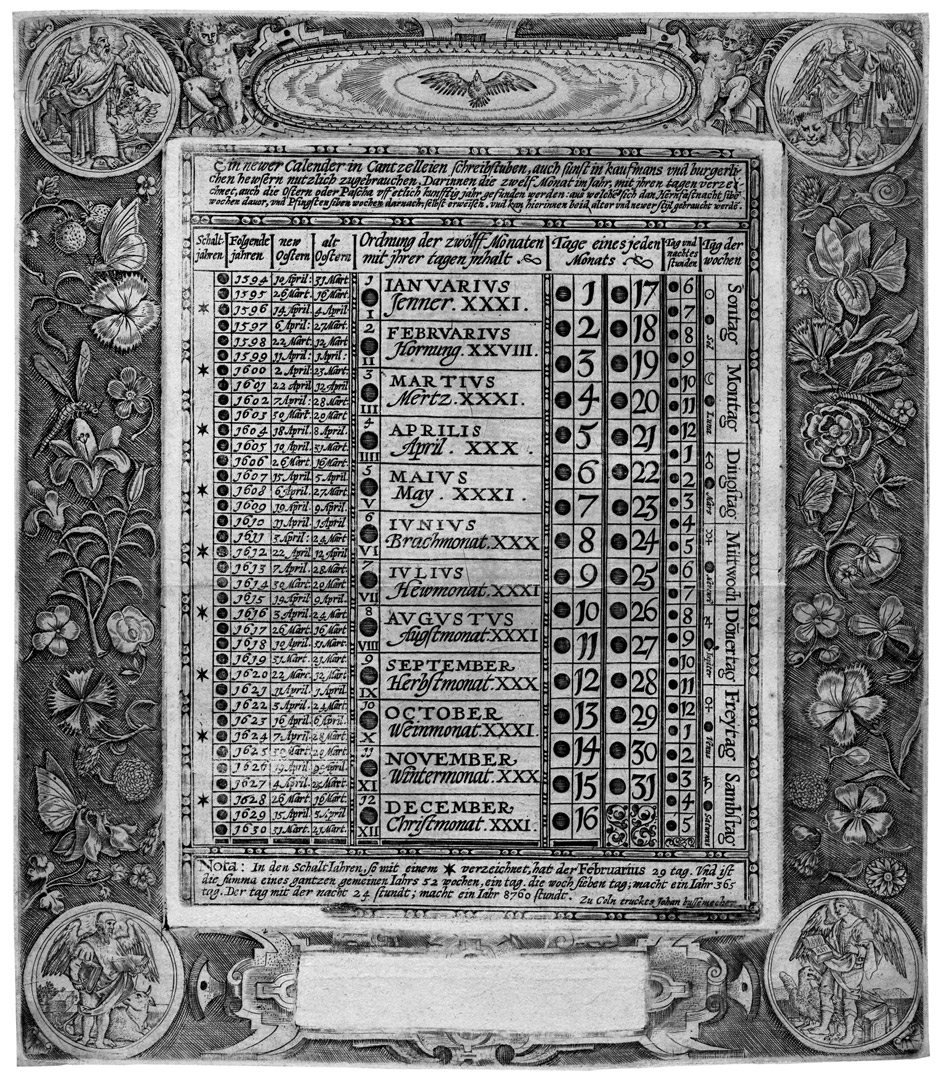 Ein newer Calender in Cantzelleien schreibstuben, auch sunst in kaufmans vnd burgerli-
chen hewsern nutzlich zugebrauchen, Darinnen die zwelf Monat im Jahr, mit jhren tagen verze-
chnet, auch die Ostern oder Pascha off etlich kunftig jahr gefunden werden: aus welche sich dan, Hernfastnacht sibē
wochen dauor, vnd Pfingsten siben wochen darnach, selbst erweisen. vnd kan hierinnen beid, alter vnd newer stijl gebraucht werdē.
Schalt-jahren
Folgende jahren
new Oostern
alt Oostern
Ordnung der zwölff Monaten mit jhrer tagen jnhalt
Tage eines jeden Monats
Tag und nachtes stunden
Tag der wochen
1594 10 April: 31 Mart
1595 26 Mart. 16 Mart:
* 1596 14 April 4 April
1597 6 April: 27 Mart.
1598 22 Mart 12 Mart
1599 11 April: 1 April:
* 1600 2 April: 23 Mart:
1601 22 april 12 april
1602 7 April: 28 Mart
1603 30 Mart 20 Mart
* 1604 18 April 8 April
1605 10 April 31 Mart:
1606 26 Mart 16 Mart
1607 15 April 5 April:
* 1608 6 April 27 Mart
1609 19 April 9 April:
1610 11 April 1 April
1611 3 April: 24 Mart
* 1612 22 April 12 April
1613 7 April. 28 Mart:
1614 30 Mart 20 Mart
1615 19 April 9 April:
* 1616 3 April: 24 Mart
1617 26 Mart 16 Mart
1618 10 April. 31 Mart.
1619 31 Mart. 21 Mart:
* 1620 22 Mart. 12 Mart
1621 11 April: 1 April:
1622 3 April: 24 Mart:
1623 16 April 6 April:
* 1624 7 April: 28 Mart
1625 30 Mart: 20 Mart
1626 19 April 9 April
1627 4 April: 25 Mart
* 1628 26 Mart 16 Mart
1629 15 April 5 April
1630 31 Mart. 21 Mart.
1 I IANVARIVS
Jenner. XXXI.
2 II FEBRVARIVS
Hornung. XXVIII.
3 III MARTIVS
Mertz. XXXI.
4 IIII APRILIS
April. XXX.
5 V MAIVS
May. XXXI.
6 VI IVNIVS
Brachmonat. XXX
7 VII IVLIVS
Hewmonat. XXXI
8 VIII AVGVSTVS
Augstmonat. XXXI
9 IX SEPTEMBER
Herbstmonat. XXX
10 X OCTOBER
Weinmonat. XXXI.
11 XI NOVEMBER
Wintermonat. XXX
12 XII DECEMBER
Christmonat. XXXI.
1 17
2 18
3 19
4 20
5 21
6 22
7 23
8 24
9 25
10 26
11 27
12 28
13 29
14 30
15 31
16
6
7
8
9
10
11
12
1
2
3
4
5
6
7
8
9
10
11
12
1
2
3
4
5
☉ Sol Sontag
☾ Luna Montag
♂ Mars Dinstag
☿ Mitwoch
♃ Jupiter Donertag
♀ Venꝰ Freytag
♄ Saturnꝰ Sambstag
Nota: In den Schalt Iahren, so mit einem ★ verzeichnet, hat der Februarius 29 tag. Vnd ist
die summa eines gantzen gemeinen Iahrs 52 wochen, ein tag. die woch sieben tag; macht ein Iahr 365
tag. Der tag mit der nacht 24 stundt; macht ein Iahr 8760 stundt. Zu Coln truckts Johan bussemecher